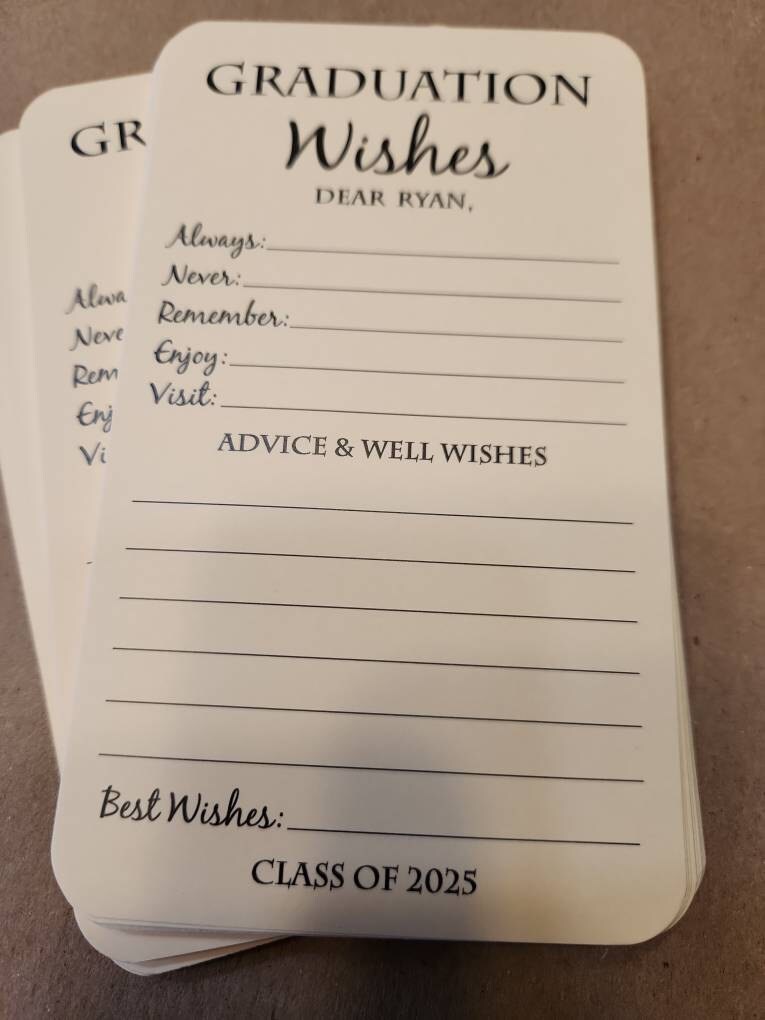 GRADUATION
Wishes
DEAR RYAN,
Always:
Never:
Remember:
Enjoy:
Visit:
ADVICE & WELL WISHES
Best Wishes:
CLASS OF 2025
GR
Alwa
Neve
Rem
Enj
Vi